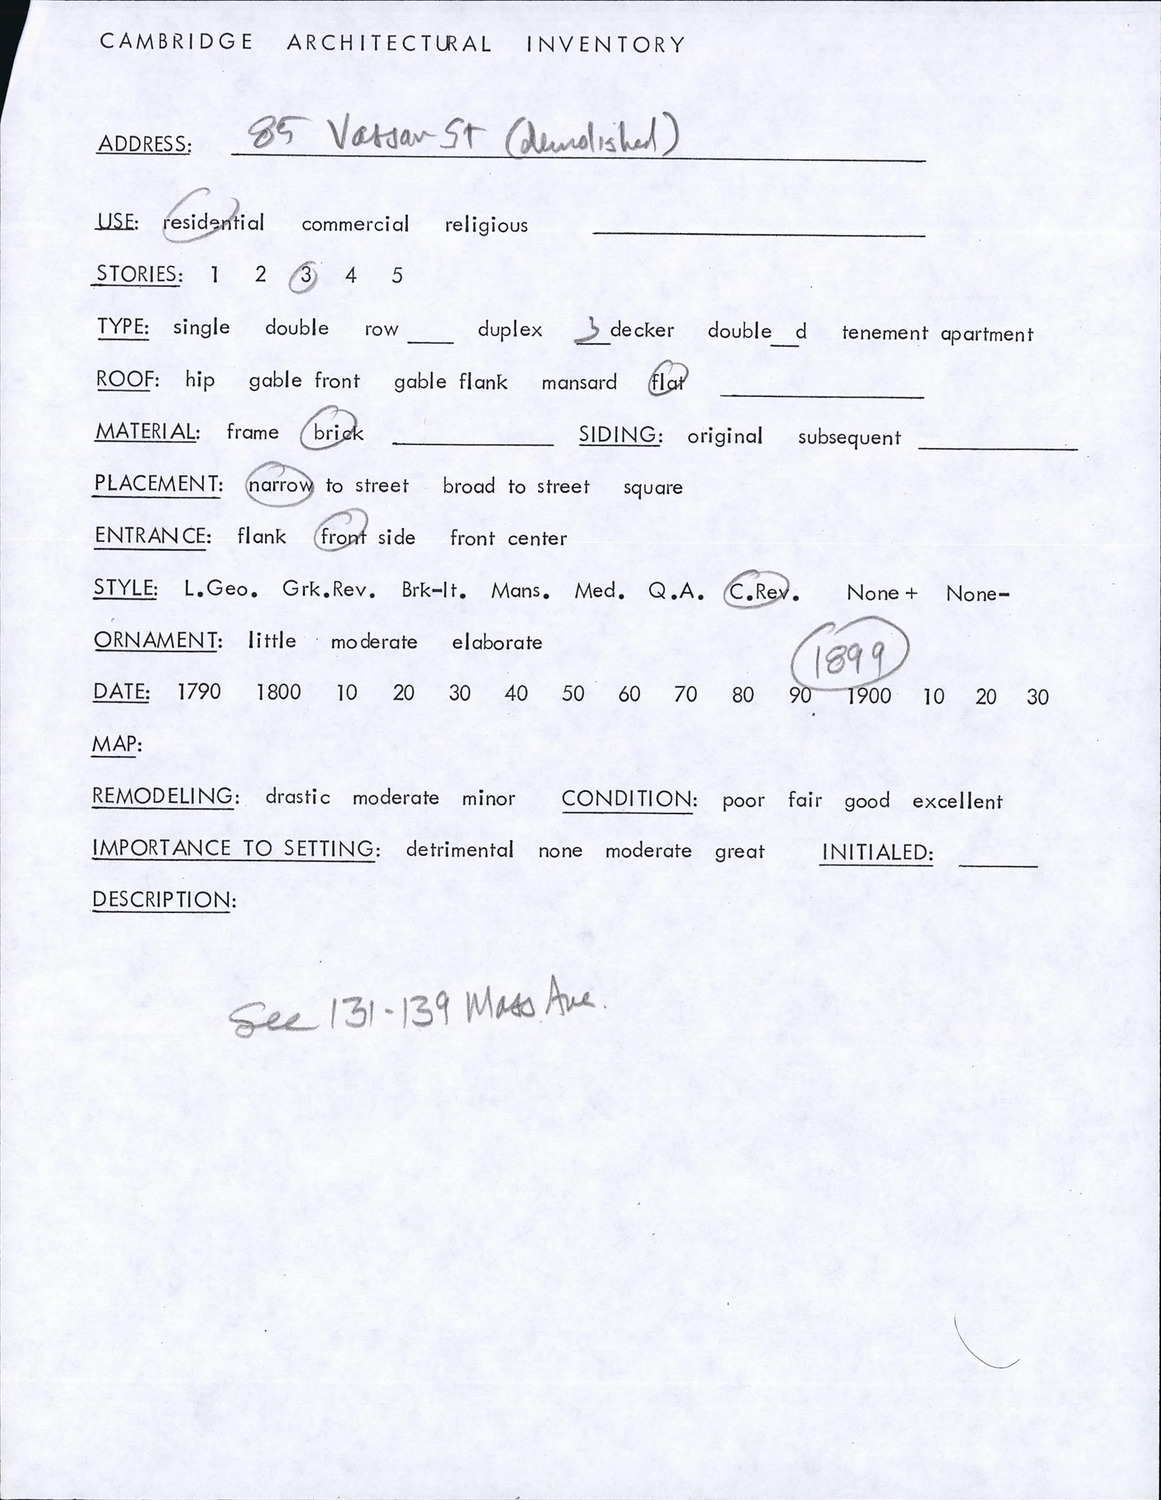 CAMBRIDGE ARCHITECTURAL INVENTORY
ADDRESS: 85 Vassar St (demolished)
USE: residential commercial religious
STORIES: 1 2 3 4 5
TYPE: single double row ____ duplex 3 decker double __ d tenement apartment
ROOF: hip gable front gable flank mansard flat
MATERIAL: frame brick ____ SIDING: original subsequent ____
PLACEMENT: narrow to street broad to street square
ENTRANCE: flank front side front center
STYLE: L.Geo. Grk.Rev. Brk-It. Mans. Med. Q.A. C.Rev. None+ None-
ORNAMENT: little moderate elaborate
1899
DATE: 1790 1800 10 20 30 40 50 60 70 80 90 1900 10 20 30
MAP:
REMODELING: drastic moderate minor CONDITION: poor fair good excellent
IMPORTANCE TO SETTING: detrimental none moderate great INITIALED: ____
DESCRIPTION:
See 131-139 Mass Ave.